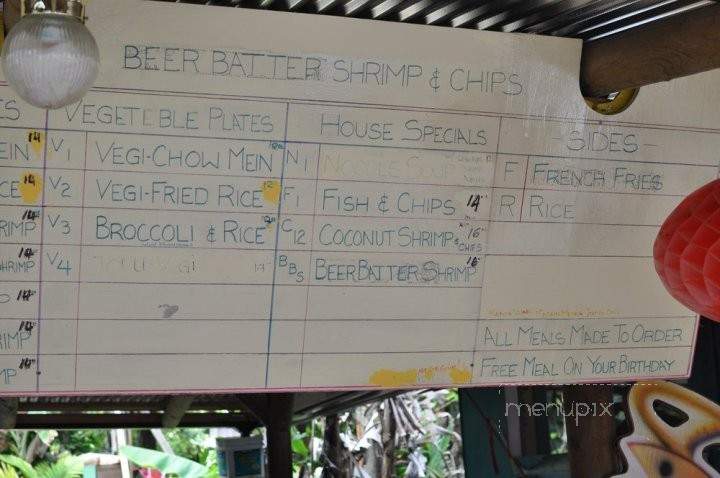 BEER BATTER SHRIMP & CHIPS
ES VEGETBLE PLATES HOUSE SPECIALS - SIDES -
EIN 14 V1 VEGI-CHOW MEIN N1 NOODLE SOUP F FRENCH FRIES
CE 14 V2 VEGI-FRIED RICE 12 F1 FISH & CHIPS 14 R RICE
RIMP 14 V3 BROCCOLI & RICE C12 COCONUT SHRIMP & CHIPS 16
SHRIMP 14 V4 BBS BEER BATTER SHRIMP 16
P 14
IMP 14 ALL MEALS MADE TO ORDER
MP 14 FREE MEAL ON YOUR BIRTHDAY
menupix